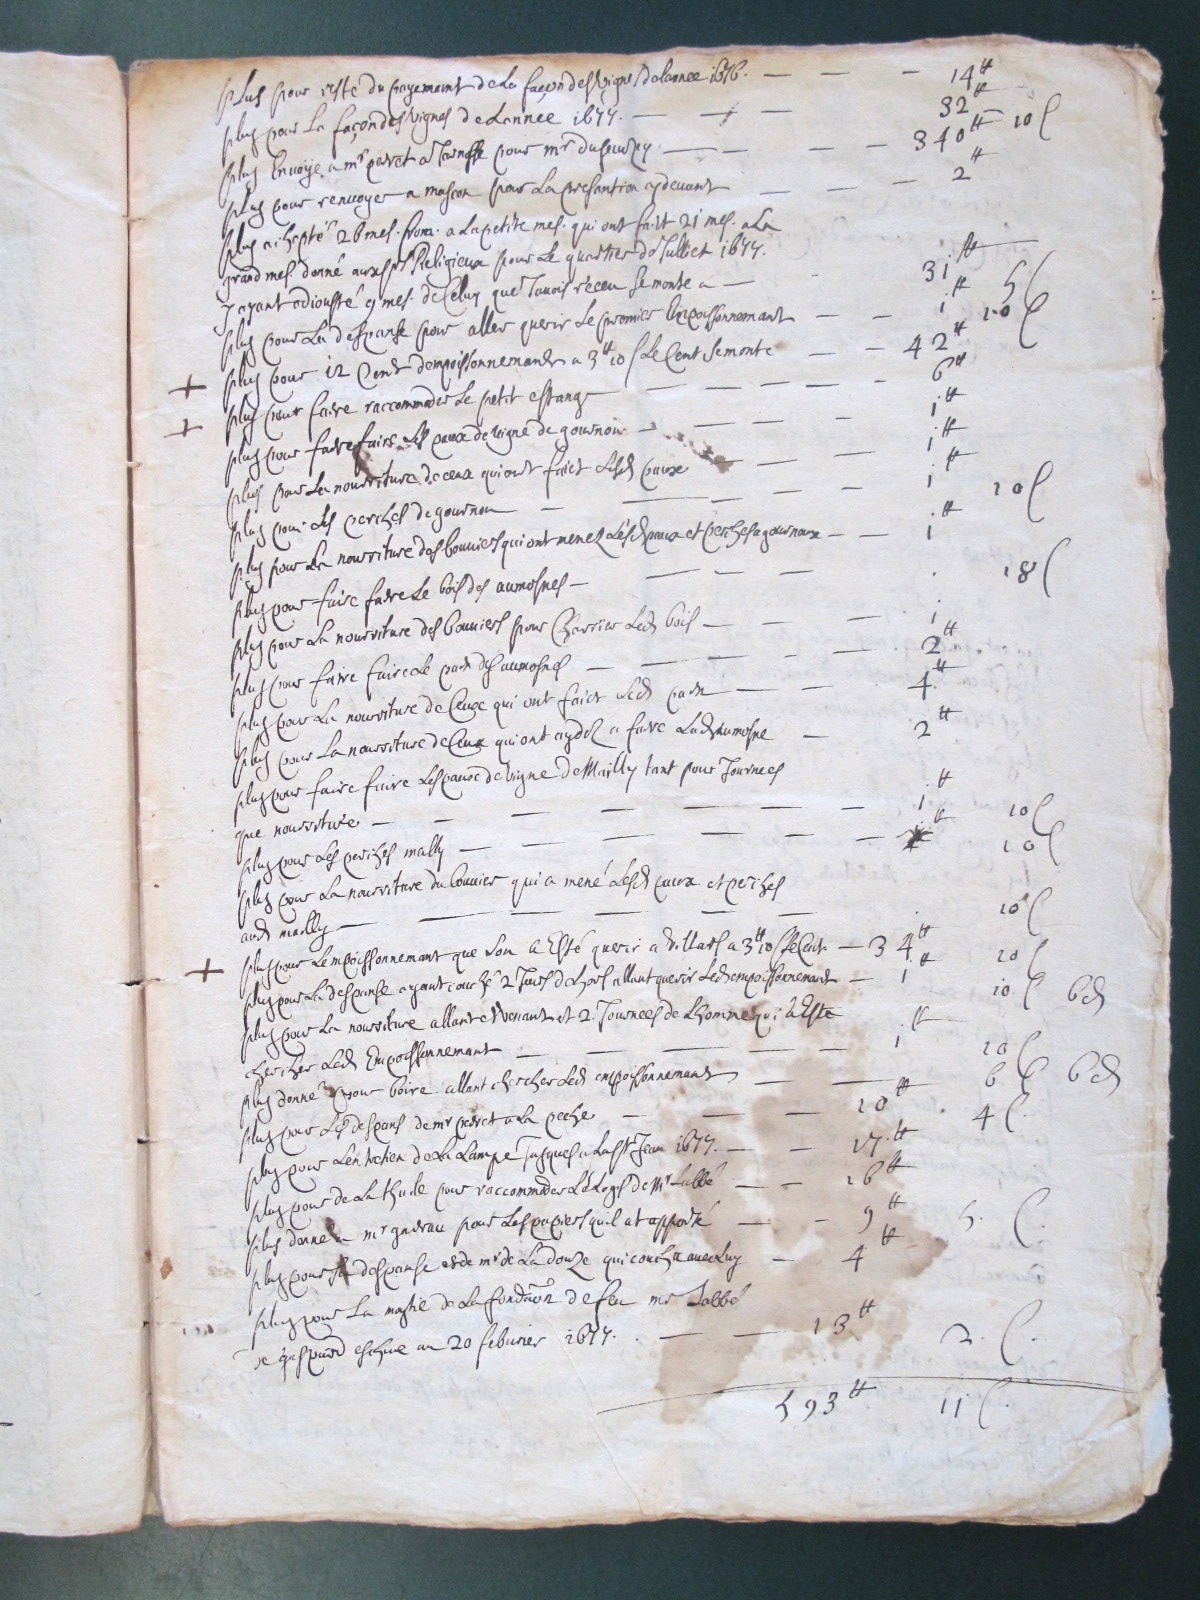 plus pour reste du payement de la façon des vignes de lannee 1676. — — — 14 ₶
plus pour la façon des vignes de Lannee 1677. — — — 32 ₶
plus Envoÿe a mr perret a pour mr — — — 340 ₶ 10 ʃ
plus pour renvoyer a mascon pour La presantion cydevant — — — 2 ₶
plus achepté 26 mes. from. a La petite mes. qui ont fait 21 mes. a La
grand mes. donné auxdts Religieux pour Le quartier de Juilliet 1677.
y ayant adiousté 9 mes. de Celuy que Javois receu Se monte a — 31 ₶ 5 ʃ
plus pour La despanse pour aller querir Le premier Empoissonnemant — — 1 ₶ 10 ʃ
+ plus pour 12 Cent dempoissonnemant a 3 ₶ 10 ʃ Le Cent Se monte — — 42 ₶
+ plus pour faire raccommoder Le petit estang — — — — 6 ₶
plus pour faire faire Les paux de vigne de gournou — — — 1 ₶
plus pour La nourriture de ceux qui ont faict Lesd paux — — — 1 ₶
plus pour Les perches de gournou — — — — 1 ₶ 10 ʃ
plus pour La nourriture des bouviers qui ont menez Lesd paux et perches a gournoux — — 1 ₶
plus pour faire faire Le bois des aumosnes — — — — . 18 ʃ
plus pour La nourriture des bouviers pour Charrier Led bois — — — 1
plus pour faire faire Le pain des aumosnes — — — — 2 ₶
plus pour La nourriture de Ceux qui ont faict Led pain — — — 4 ₶
plus pour La nourriture de Ceux qui ont aydez a faire Lad aumosne — 2 ₶
plus pour faire faire Les paux de vigne de Mailly tant pour Journees
que nourriture — — — — — — 1 ₶ 10 ʃ
plus pour Les perches mailly — — — — — 10 ʃ
plus pour La nourriture du bouvier qui a mené Lesd paux et perches
aud mailly — — — — — — . 10 ʃ
+ plus pour Lempoissonnemant que Lon a Esté querir a Villars a 3 ₶ 10 ʃ Le Cent — 34 ₶ 10 ʃ
plus pour La despanse ayant couché 2 Jours dehors allant querir Led empoissonnemant — 1 ₶ 10 ʃ 6 d
plus pour La nourriture allant et venant et 2. Journees de Lhomme qui a Esté
chercher Led Empoissonnemant — — — — — 1 ₶ 10 ʃ
plus donné pour boire allant chercher Led empoissonnemant — — 6 ʃ 6 d
plus pour Les despans de mr perret a La peche — — — 10 ₶ . 4 ʃ.
plus pour Lentretien de La Lampe Jusques a La St Jean 1677. — — 17 ₶
plus pour de La thuile pour raccommoder Le Logis de Mr Labbé — — 16 ₶
plus donné a mr pour Les papiers quil at apporté — — 9 ₶ 5. ʃ.
plus pour sa despanse et de mr de La douze qui coucha avec Luy — 4 ₶
plus pour La moytié de La fondaōn de feu mr Labbé
au 20 febvrier 1677. . — — 13 ₶ 2. ʃ.
593 ₶ 11 ʃ.